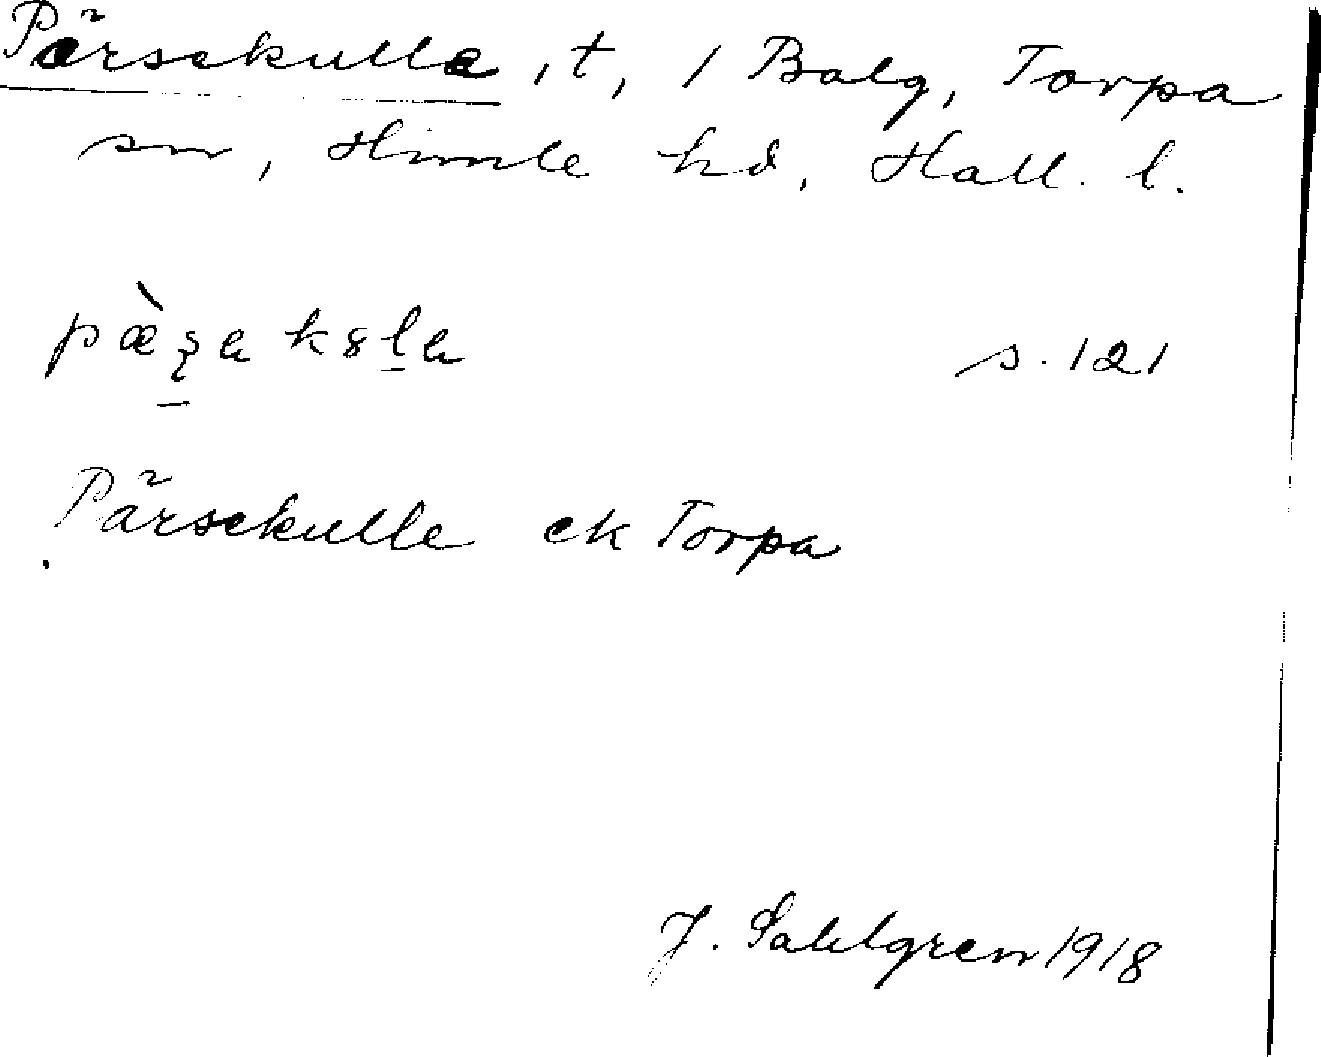 Pärsekulle, t, 1 Balg, Torpa
sn, Himle hd, Hall. l.
s. 121
Pärsekulle ek Torpa
J. Sahlgren 1918